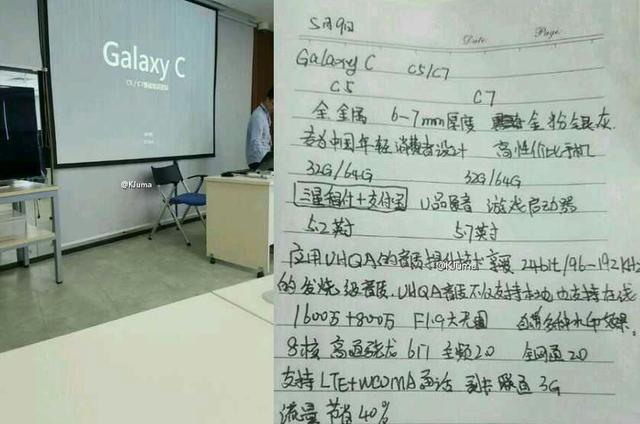 Galaxy C
@KJuma
5月9日
Date Page
Galaxy C C5/C7
C5 C7
全金属 6-7mm厚度 金粉银灰
为中国年轻消费者设计 高性价比手机
32G/64G 32G/64G
三星智付+支付宝 U品音 游戏启动器
5.2英寸 5.7英寸
应用UHQA的音质提升技术 享受 24bit/96-192KHz
@KJuma
的发烧级音质,UHQA音质不仅支持本地也支持在线
1600万+800万 F1.9大光圈 水印效果。
8核 高通骁龙 617 主频2.0 全网通2.0
支持LTE+WCDMA通话 副卡联通3G
流量节省40%